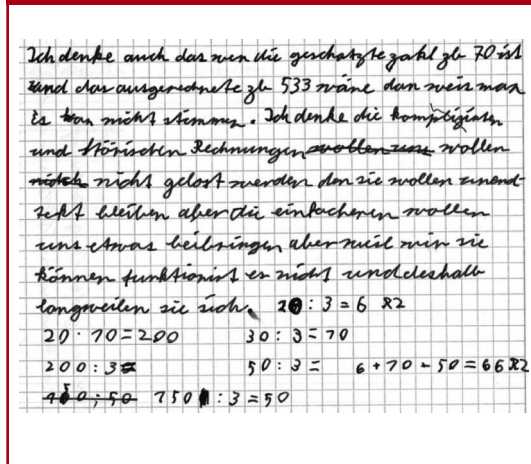 Ich denke auch das wen die geschatzte zahl zb 70 ist
und das ausgerechnete zb 533 wäre dan weis man
es kan nicht stimmen. Ich denke die kompligirten
und störischen Rechnungen wollen uns wollen
nicht nicht gelost werden den sie wollen unend-
tekt bleiben aber die einfacheren wollen
uns etwas beibringen aber weil wir sie
können funktionirt es nicht und deshalb
langweilen sie sich. 20 : 3 = 6 R2
20 · 10 = 200 30 : 3 = 10
200 : 3 = 50 : 3 = 6 + 10 + 50 = 66 R2
150 : 3 = 50